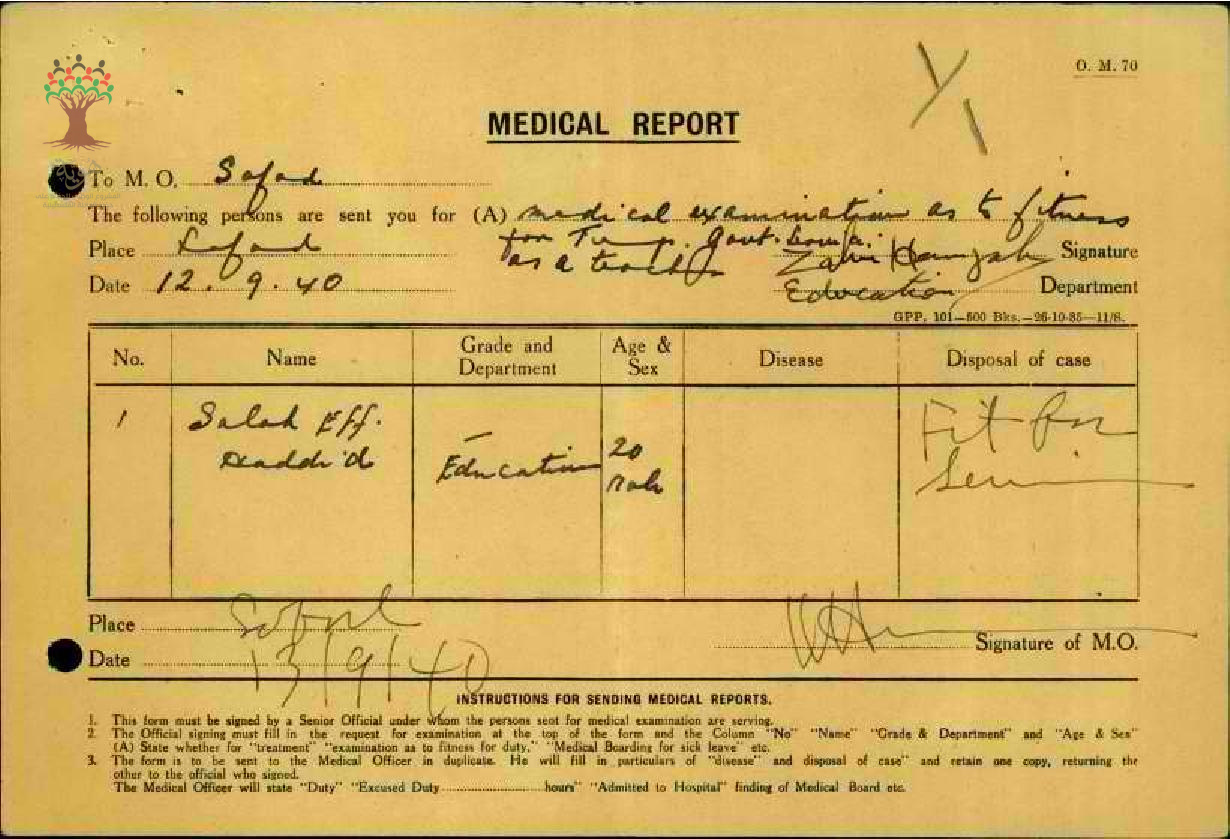 O. M. 70
MEDICAL REPORT
To M. O. Safad
The following persons are sent you for (A) medical examination as to fitness
for Temp. Govt.
as a teacher
Place Safad
Signature
Date 12.9.40
Education Department
GPP. 101—500 Bks.—26-10-35—11/S.
No. Name Grade and Department Age & Sex Disease Disposal of case
1 Salah Eff. Haddad Education 20 Male Fit for
Place Safad
Signature of M.O.
Date 13/9/40
INSTRUCTIONS FOR SENDING MEDICAL REPORTS.
1. This form must be signed by a Senior Official under whom the persons sent for medical examination are serving.
2. The Official signing must fill in the request for examination at the top of the form and the Column "No" "Name" "Grade & Department" and "Age & Sex"
(A) State whether for "treatment" "examination as to fitness for duty," "Medical Boarding for sick leave" etc.
3. The form is to be sent to the Medical Officer in duplicate. He will fill in particulars of "disease" and disposal of case" and retain one copy, returning the
other to the official who signed.
The Medical Officer will state "Duty" "Excused Duty ........................ hours" "Admitted to Hospital" finding of Medical Board etc.